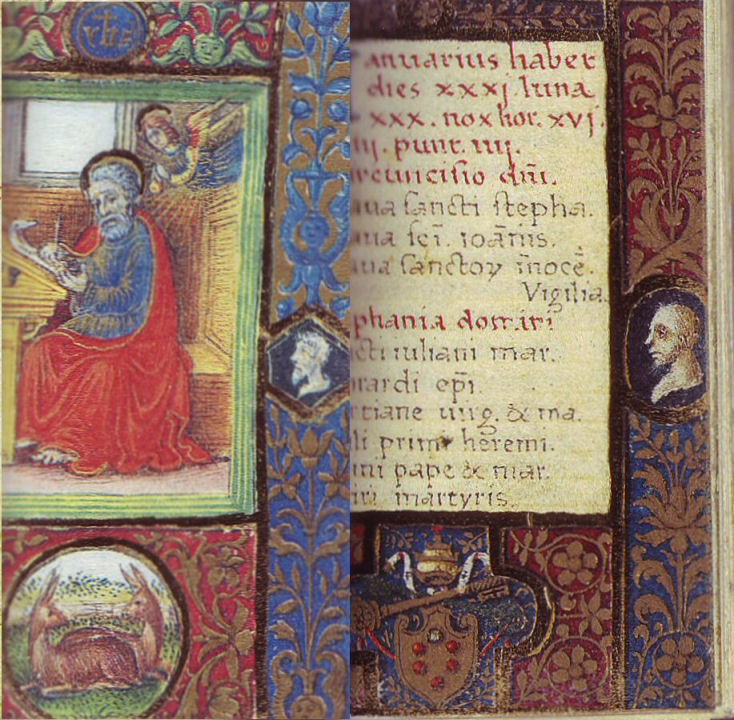 yhs
anuarius habet
dies xxxj luna
xxx. nox hor. xvj.
iiij. punt. iiij.
rcuncisio dñi.
aua sancti stepha.
aua sci. ioãnis.
aua sanctoꝝ ĩnocẽ.
Vigilia.
phania domini
cti iuliani mar.
nardi epi.
rtiane uirg. & ma.
li primi heremi.
ini pape & mar.
iri martyris.